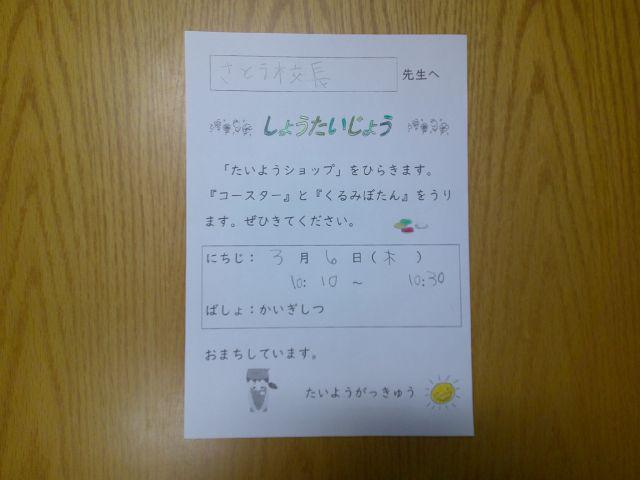 さとう校長 先生へ
しょうたいじょう
「たいようショップ」をひらきます。
『コースター』と『くるみぼたん』をうり
ます。ぜひきてください。
にちじ： 3 月 6 日（ 木 ）
10:10 ～ 10:30
ばしょ：かいぎしつ
おまちしています。
たいようがっきゅう